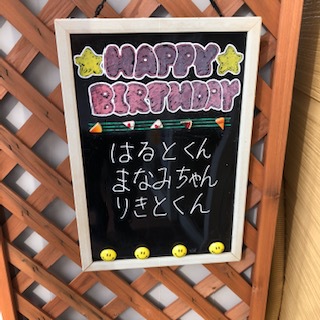 HAPPY
BIRTHDAY
はるとくん
まなみちゃん
りきとくん